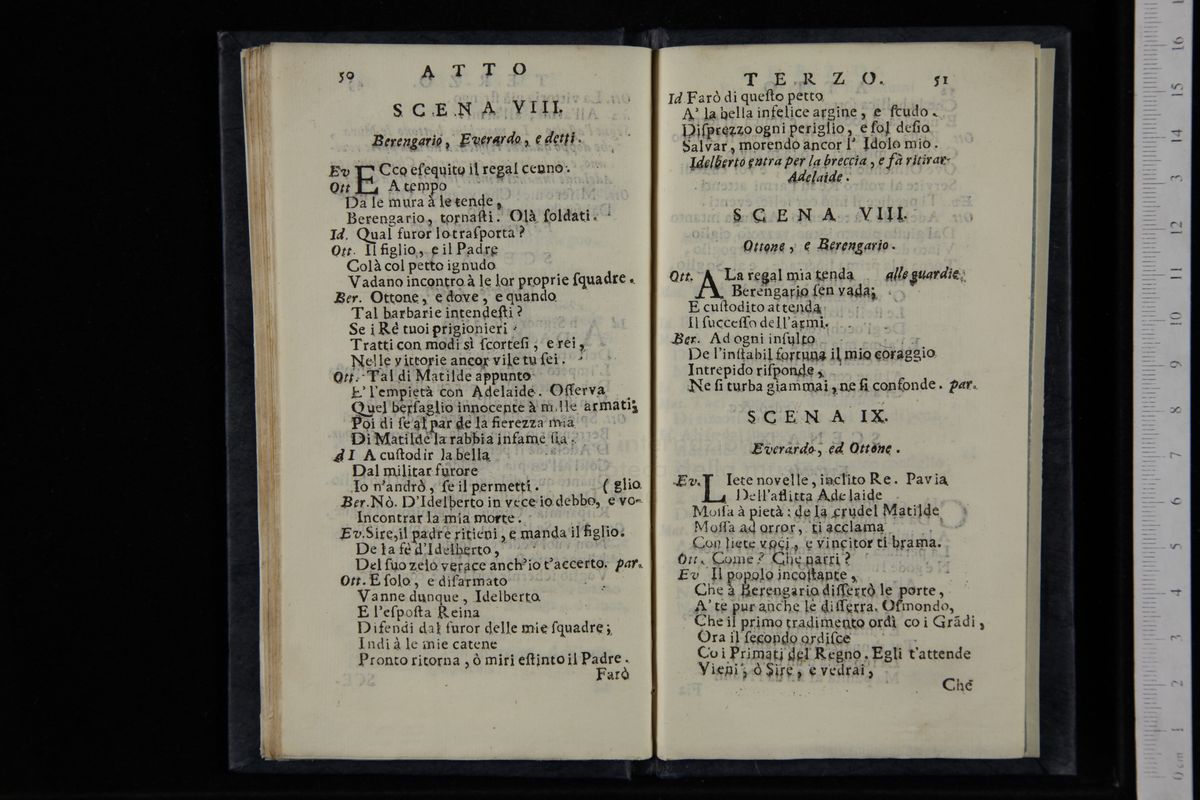 50 ATTO
SCENA VIII.
Berengario, Everardo, e detti.
Ev ECco eſequito il regal cenno.
Ott A tempo
Da le mura à le tende,
Berengario, tornaſti. Olà ſoldati.
Id. Qual furor lo traſporta?
Ott. Il figlio, e il Padre
Colà col petto ignudo
Vadano incontro à le lor proprie ſquadre.
Ber. Ottone, e dove, e quando
Tal barbarie intendeſti?
Se i Rè tuoi prigionieri
Tratti con modi sì ſcorteſi, e rei,
Nelle vittorie ancor vile tu ſei.
Ott. Tal di Matilde appunto
E' l'empietà con Adelaide. Oſſerva
Quel berſaglio innocente à mille armati;
Poi di ſe al par de la fierezza mia
Di Matilde la rabbia infame ſia.
d I A cuſtodir la bella
Dal militar furore
Io n'andrò, ſe il permetti. (glio
Ber. Nò. D'Idelberto in vece io debbo, e vo-
Incontrar la mia morte.
Ev. Sire, il padre ritieni, e manda il figlio.
De la fè d'Idelberto,
Del ſuo zelo verace anch'io t'accerto. par.
Ott. E ſolo, e diſarmato
Vanne dunque, Idelberto
E l'eſpoſta Reina
Difendi dal furor delle mie ſquadre;
Indi à le mie catene
Pronto ritorna, ò miri eſtinto il Padre.
Farò
TERZO. 51
Id Farò di queſto petto
A' la bella infelice argine, e ſcudo.
Diſprezzo ogni periglio, e ſol deſio
Salvar, morendo ancor l' Idolo mio.
Idelberto entra per la breccia, e fà ritirar
Adelaide.
SCENA VIII.
Ottone, e Berengario.
Ott. ALa regal mia tenda alle guardie.
Berengario ſen vada;
E cuſtodito attenda
Il ſucceſſo dell'armi.
Ber. Ad ogni inſulto
De l'inſtabil fortuna il mio coraggio
Intrepido riſponde,
Ne ſi turba giammai, ne ſi confonde. par.
SCENA IX.
Everardo, ed Ottone.
Ev. LIete novelle, inclito Re. Pavia
Dell'afflitta Adelaide
Moſſa à pietà: de la crudel Matilde
Moſſa ad orror, ti acclama
Con liete voci, e vincitor ti brama.
Ott. Come? Che narri?
Ev Il popolo incoſtante,
Che à Berengario diſſerrò le porte,
A' te pur anche le diſſerra. Oſmondo,
Che il primo tradimento ordì co i Grãdi,
Ora il ſecondo ordiſce
Co i Primati del Regno. Egli t'attende
Vieni, ò Sire, e vedrai,
Che